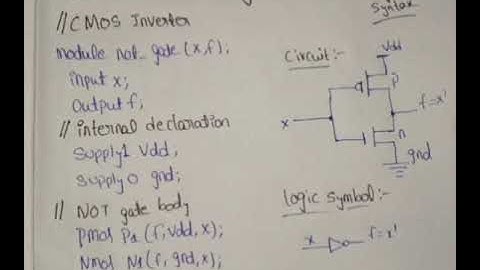 Syntax
//CMOS Inverter
module not_gate (x,f);
input x;
output f;
// internal declaration
Supply1 Vdd,
Supply0 gnd;
// NOT gate body
pmos P1 (f,vdd,x);
Nmos N1 (f, gnd,x);
Circuit:-
Vdd
P
x
f=x'
n
gnd
logic symbol:-
x
f=x'